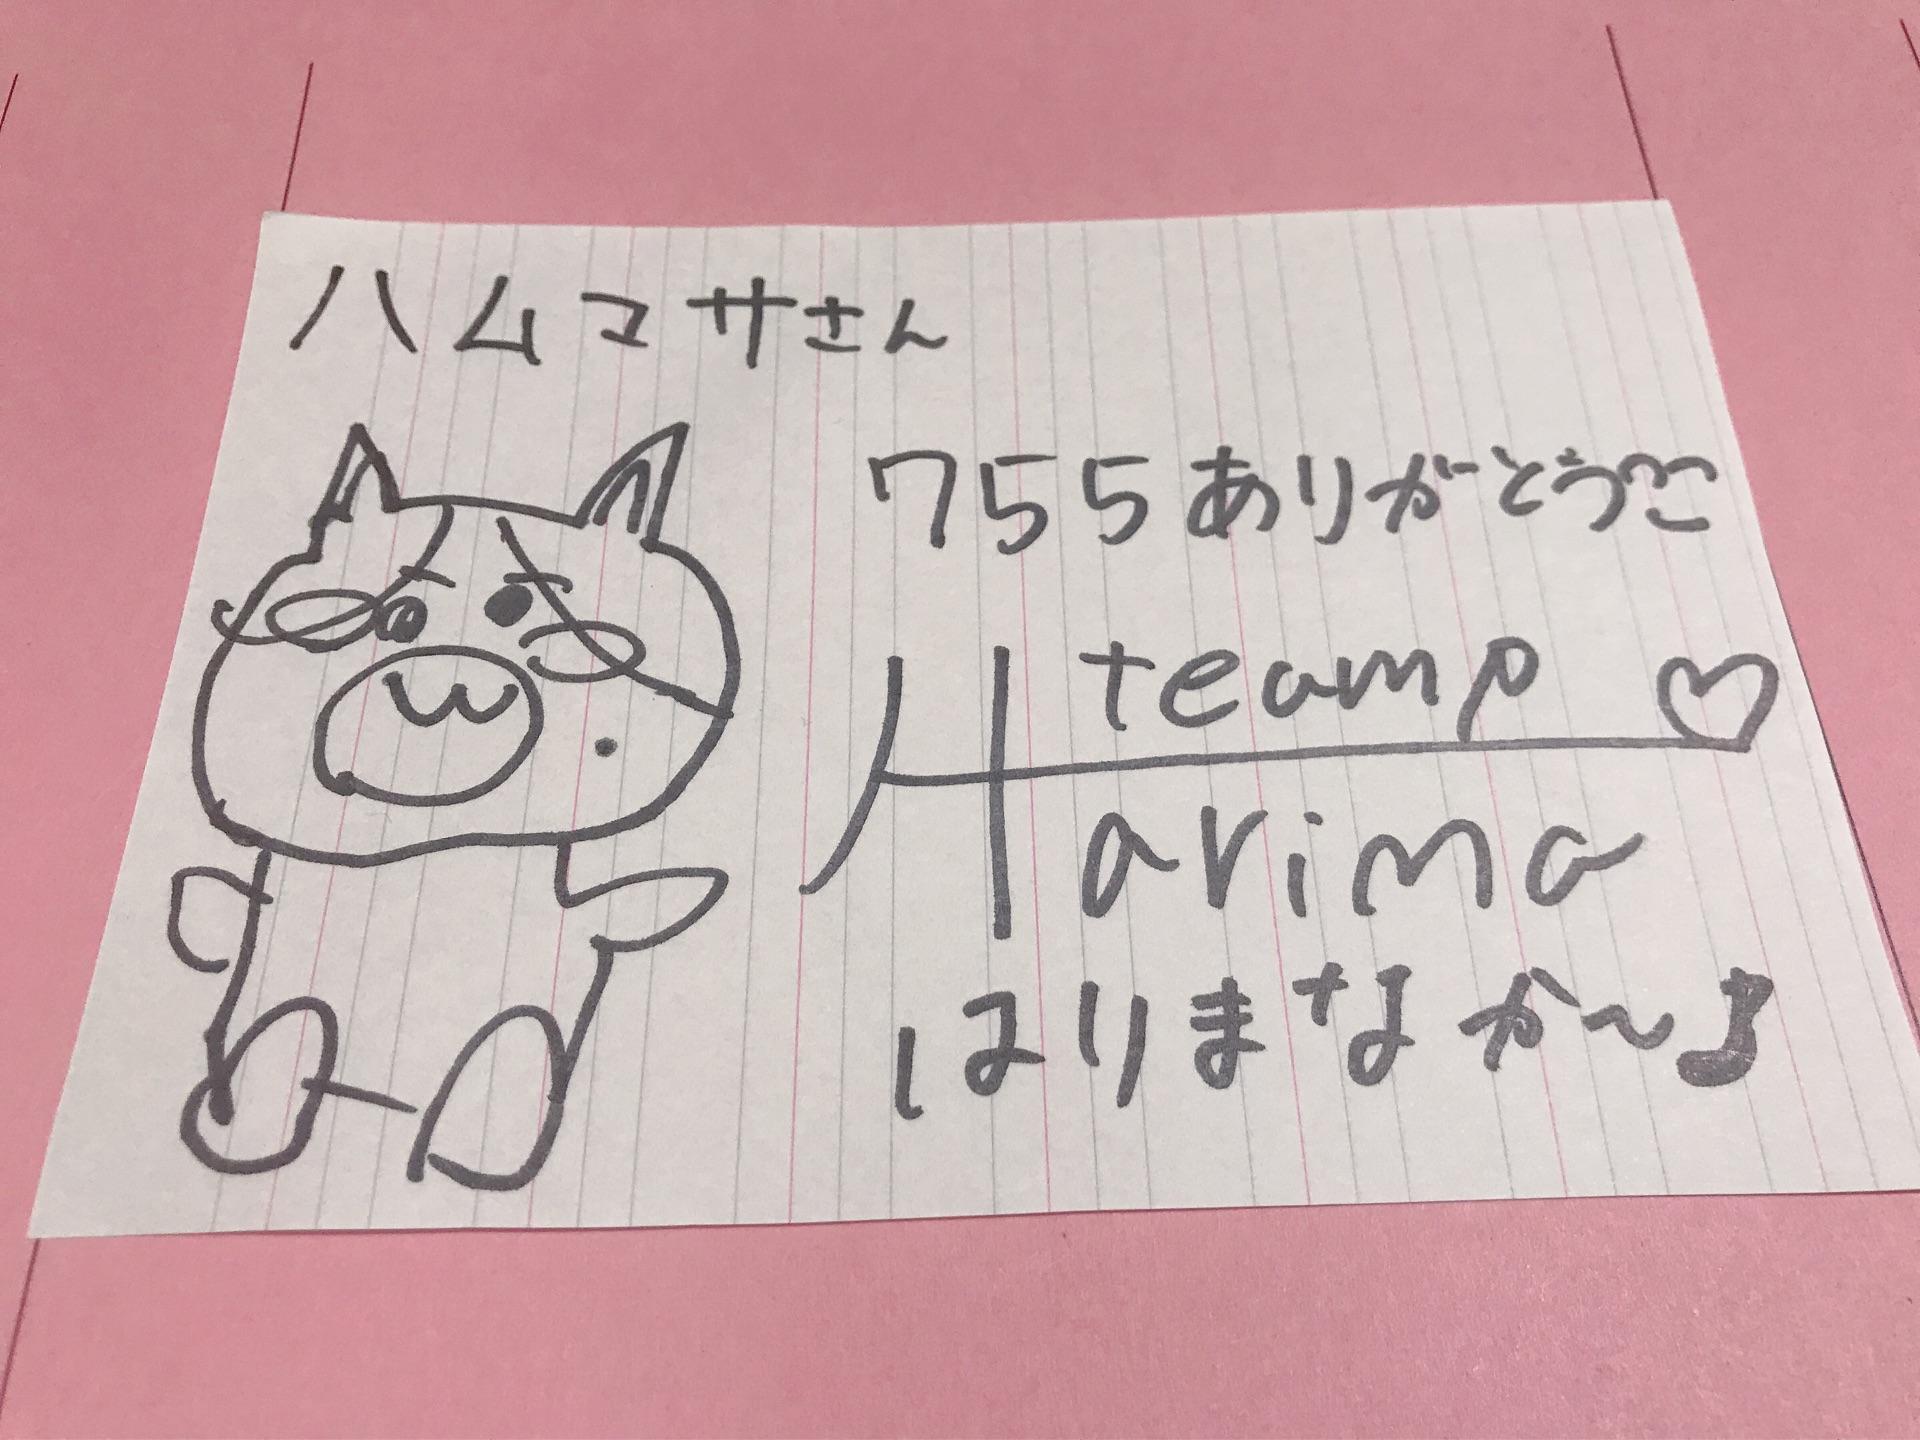 ハムマサさん
755ありがとうございます
team P ♡
Harima
はりまなか〜♪